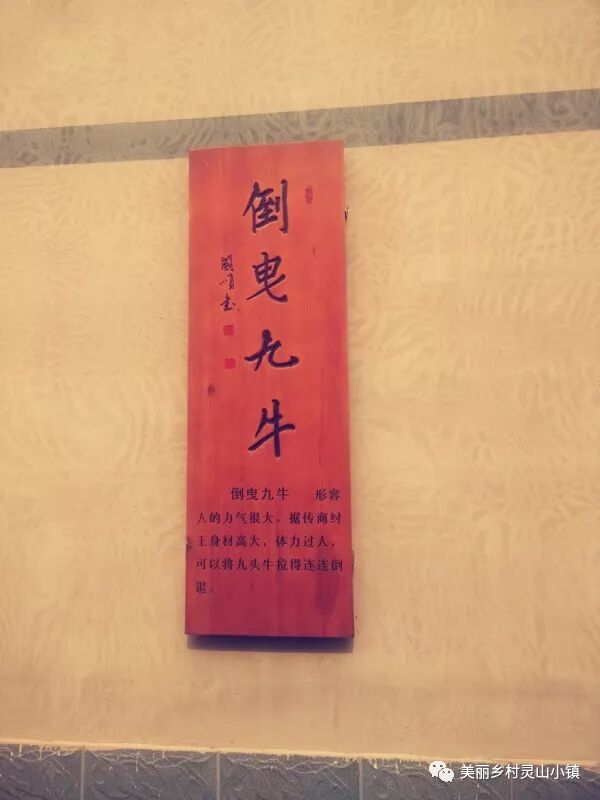 倒曳九牛
國順书
倒曳九牛 形容
人的力气很大。据传商纣
王身材高大，体力过人，
可以将九头牛拉得连连倒
退。
美丽乡村灵山小镇